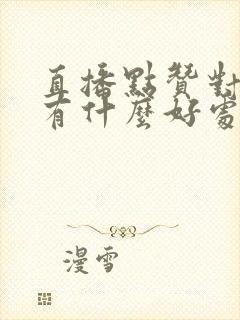 直播點贊對
有什麼好處
漫雪